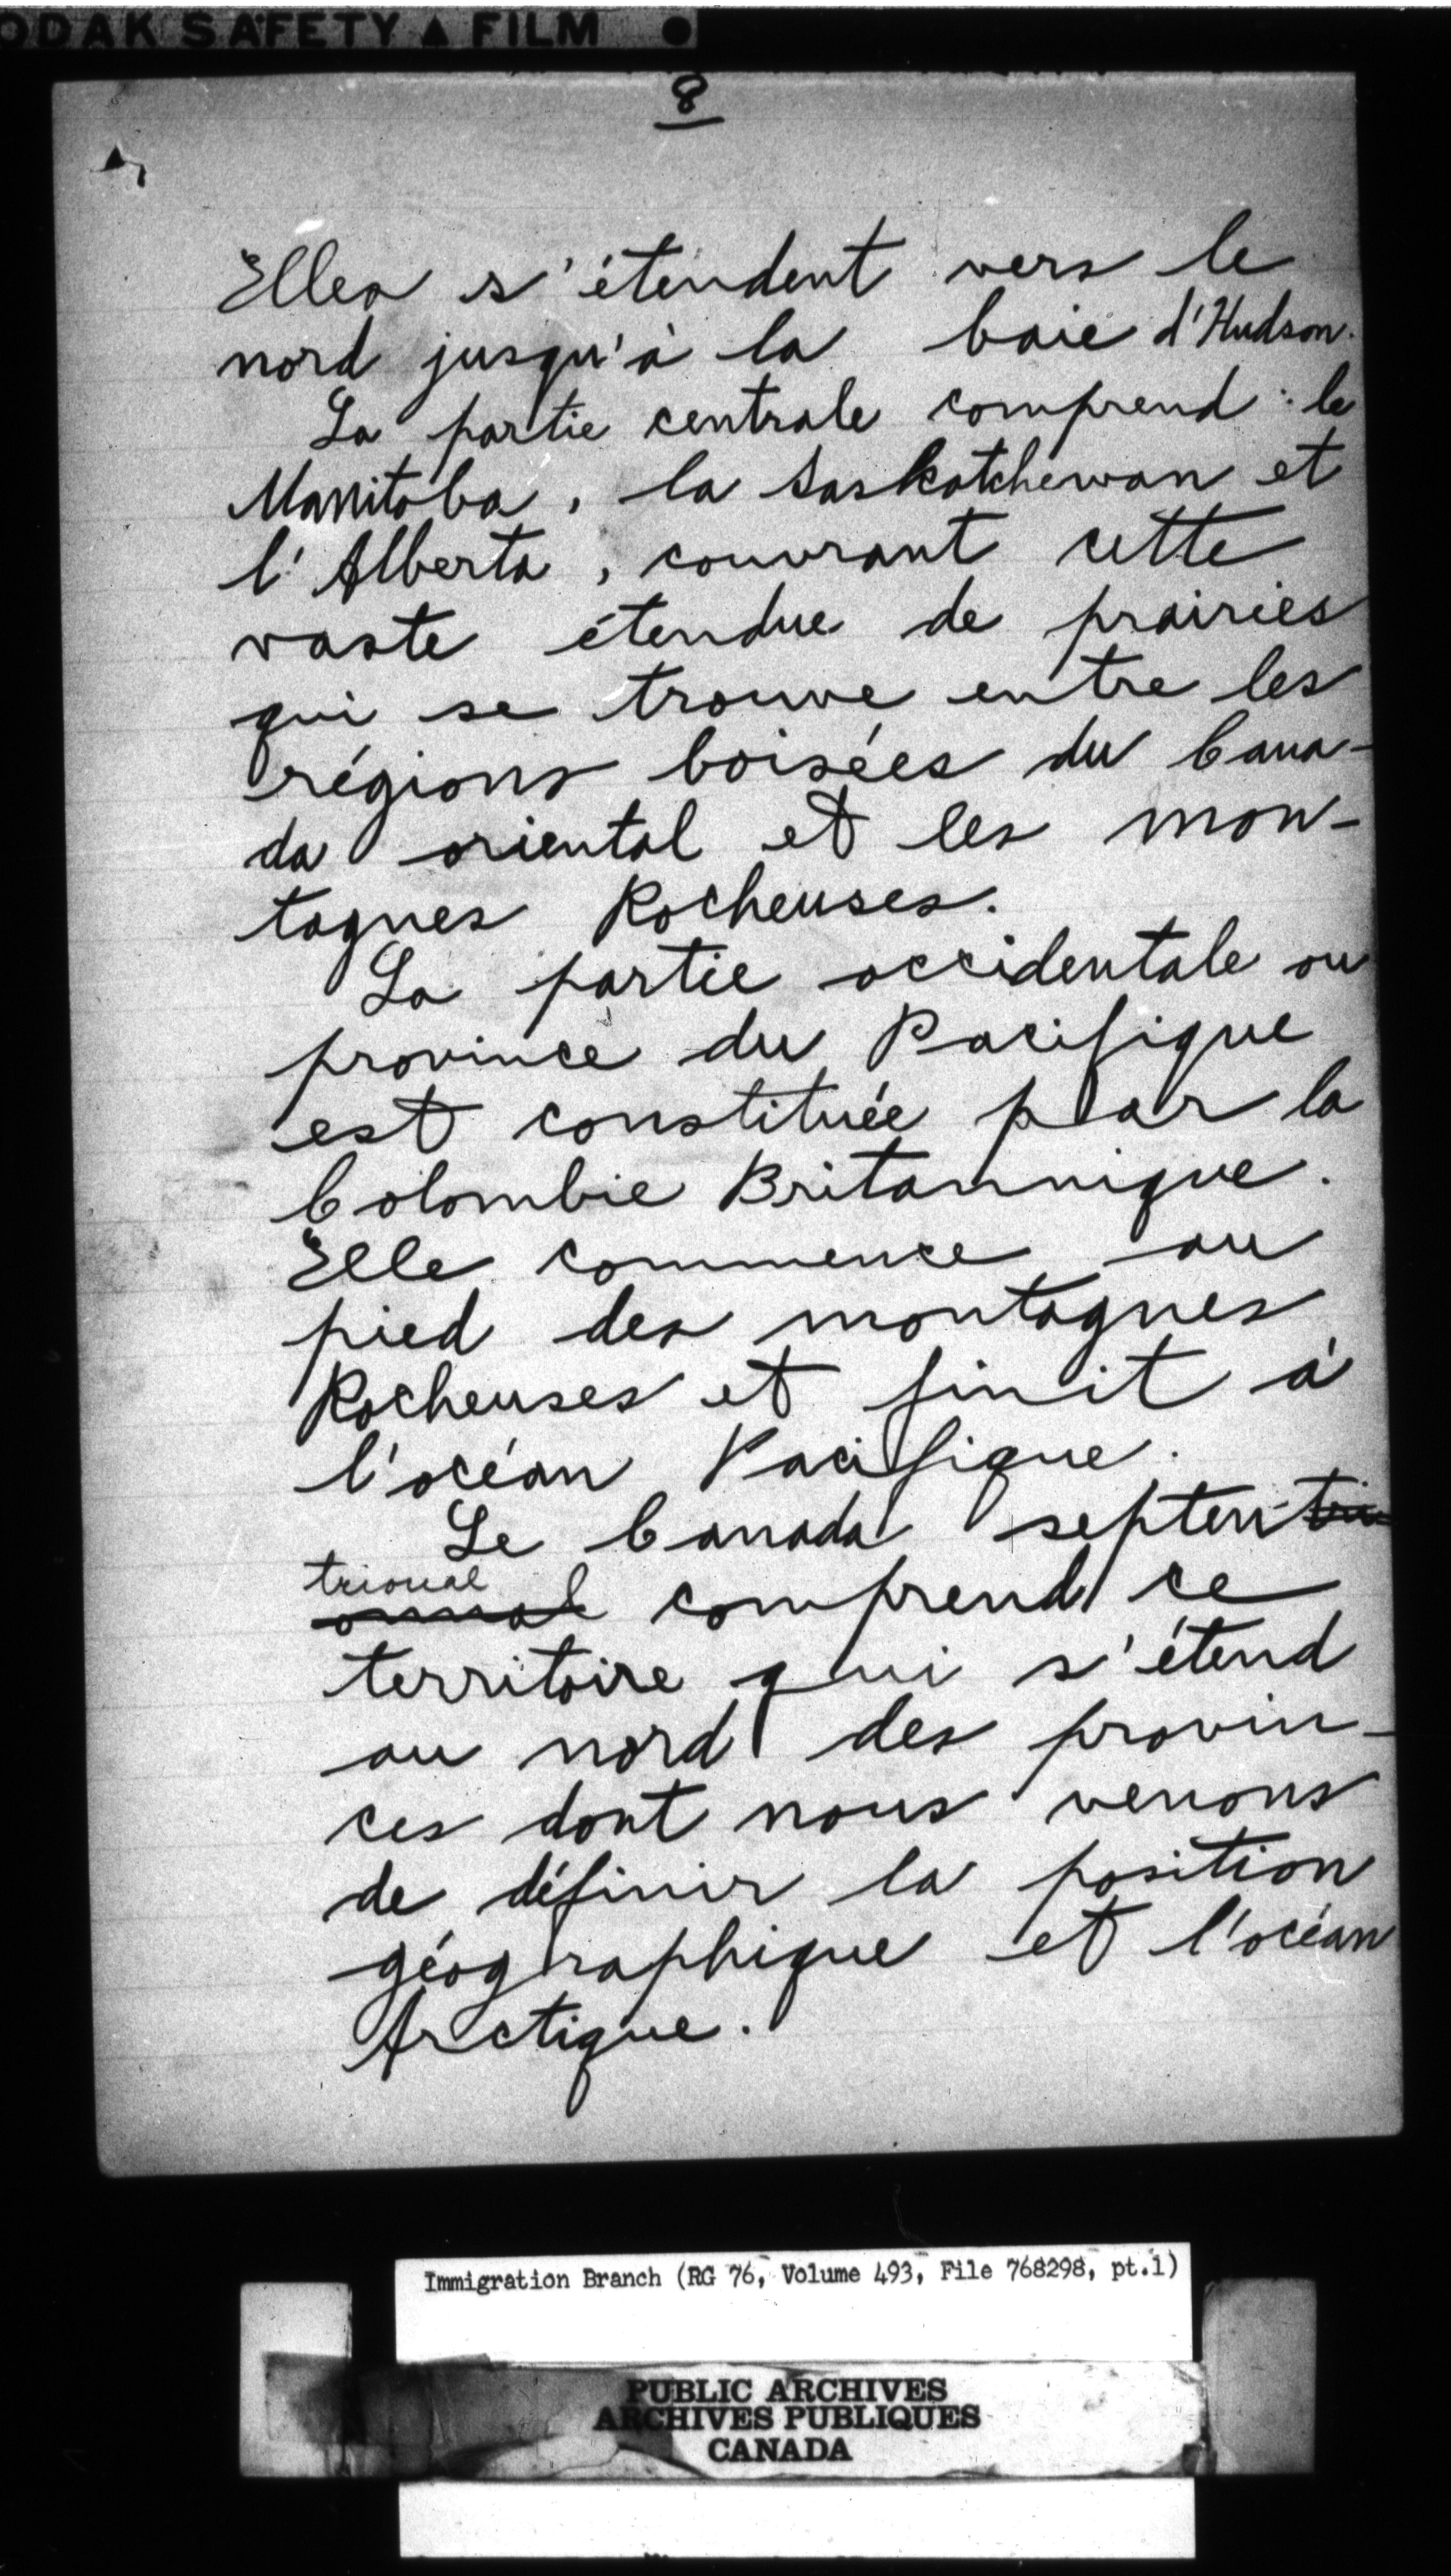 ODAK SAFETY ▲ FILM ●
8
Elles s'étendent vers le
nord jusqu'à la baie d'Hudson.
La partie centrale comprend : le
Manitoba, la Saskatchewan et
l'Alberta, couvrant cette
vaste étendue de prairies
qui se trouve entre les
régions boisées du Cana-
da oriental et les mon-
tagnes Rocheuses.
La partie occidentale ou
province du Pacifique
est constituée par la
Colombie Britannique.
Elle commence au
pied des montagnes
Rocheuses et finit à
l'océan Pacifique.
Le Canada septen-tri
trional
onnal comprend ce
territoire qui s'étend
au nord des provin-
ces dont nous venons
de définir la position
géographique et l'océan
Arctique.
Immigration Branch (RG 76, Volume 493, File 768298, pt.1)
PUBLIC ARCHIVES
ARCHIVES PUBLIQUES
CANADA